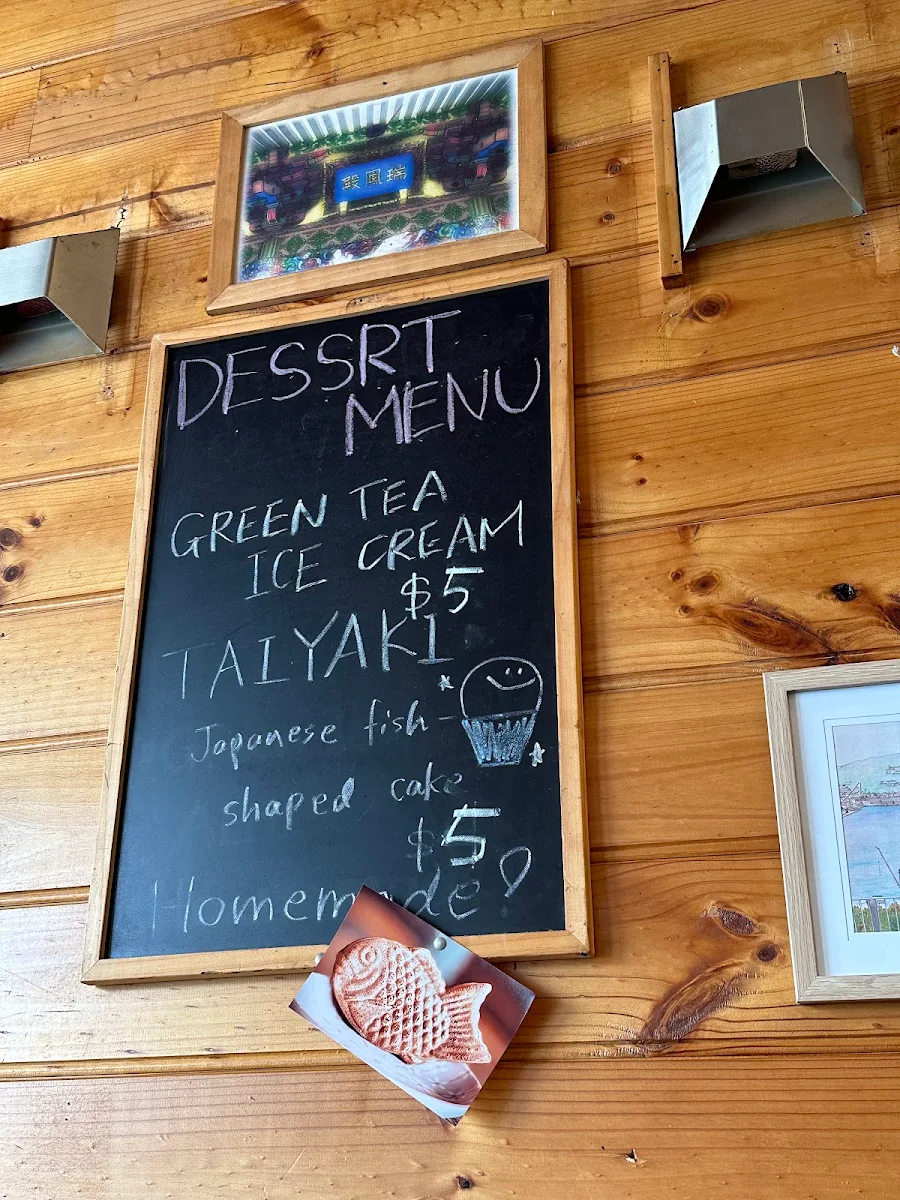 瑞鳳殿
DESSRT
MENU
GREEN TEA
ICE CREAM
$5
TAIYAKI
Japanese fish-
shaped cake
$5
Homemade!